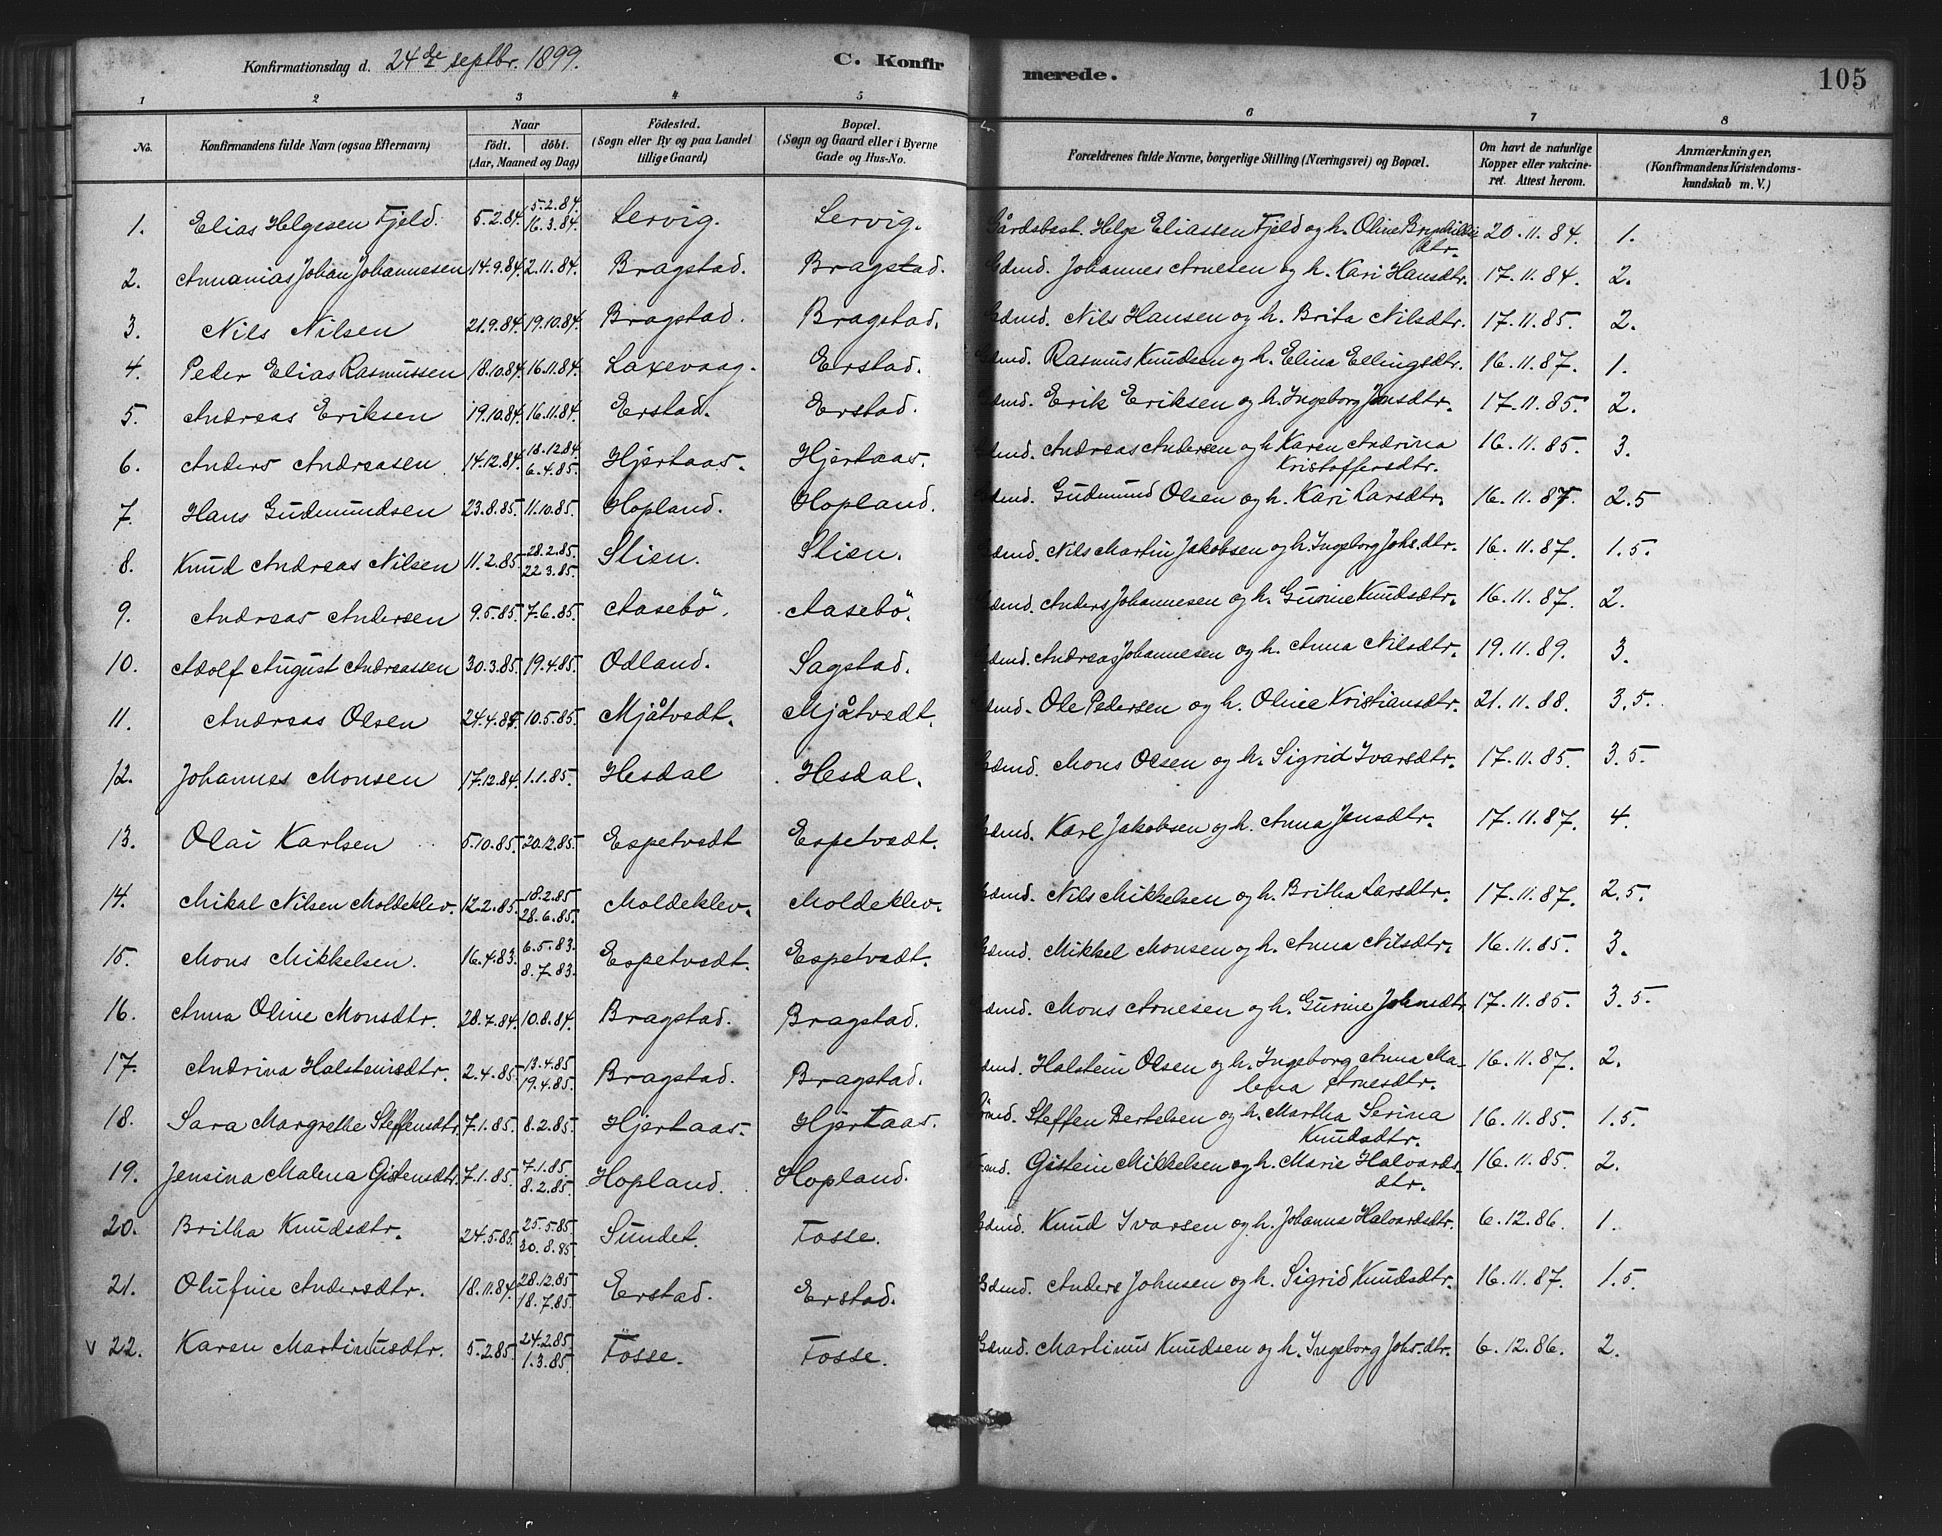 Konfirmationsdag d. 24de septbr. 1899. C. Konfirmerede. 105
1 2 3 4 5 6 7 8
No. Konfirmandens fulde Navn (ogsaa Efternavn) Naar født. døbt. (Aar, Maaned og Dag) Fødested. (Sogn eller By og paa Landet tillige Gaard) Bopæl. (Sogn og Gaard eller i Byerne Gade og Hus-No. Forældrenes fulde Navne, borgerlige Stilling (Næringsvei) og Bopæl. Om havt de naturlige Kopper eller vakcineret. Attest herom. Anmærkninger, (Konfirmandens Kristendomskundskab m. V.)
1. Elias Helgesen Fjeld. 5.2.84. 5.2.84. 16.3.84. Servig. Servig. Gårdsbest. Helge Eliassen Fjeld og h. Oline Brynhilds dtr. 20.11.84. 1.
2. Annanias Johan Johannesen 14.9.84. 2.11.84. Bragstad. Bragstad. Gdmd. Johannes Arnesen og h. Kari Hansdtr. 17.11.84. 2.
3. Nils Nilsen 21.9.84. 19.10.84. Bragstad. Bragstad. Gdmd. Nils Hansen og h. Brita Nilsdtr. 17.11.85. 2.
4. Peder Elias Rasmussen 18.10.84. 16.11.84. Laxevaag. Erstad. Gdmd. Rasmus Knudsen og h. Elina Ellingsdtr. 16.11.87. 1.
5. Andreas Eriksen 19.10.84. 16.11.84. Erstad. Erstad. Gdmd. Erik Eriksen og h. Ingeborg Jensdtr. 17.11.85. 2.
6. Anders Andreasen 14.12.84. 18.12.84. 6.4.85. Hjertaas. Hjertaas. Gdmd. Andreas Andersen og h. Karen Andrina Kristoffersdtr. 16.11.85. 3.
7. Hans Gudmundsen 23.8.85. 11.10.85. Hopland. Hopland. Gdmd. Gudmund Olsen og h. Kari Larsdtr. 16.11.87. 2.5
8. Knud Andreas Nilsen 11.2.85. 28.2.85. 22.3.85. Slien. Slien. Gdmd. Nils Martin Jakobsen og h. Ingeborg Johs.dtr. 16.11.87. 1.5.
9. Andreas Andersen 9.5.85. 7.6.85. Aasebö. Aasebö. Gdmd. Anders Johannesen og h. Gurine Knudsdtr. 16.11.87. 2.
10. Adolf August Andreassen 30.3.85. 19.4.85. Odland. Sagstad. Gdmd. Andreas Johannesen og h. Anna Nilsdtr. 19.11.89. 3.
11. Andreas Olsen 24.4.85. 10.5.85. Mjåtvedt. Mjåtvedt. Gdmd. Ole Pedersen og h. Oline Kristiansdtr. 21.11.88. 3.5.
12. Johannes Monsen 17.12.84. 1.1.85. Hesdal Hesdal. Gdmd. Mons Olsen og h. Sigrid Ivarsdtr. 17.11.85. 3.5.
13. Olai Karlsen 5.10.85. 20.12.85. Espetvedt Espetvedt. Gdmd. Karl Jakobsen og h. Anna Jensdtr. 17.11.87. 4.
14. Mikal Nilsen Moldeklev. 12.2.85. 18.2.85 28.6.85. Moldeklev. Moldeklev. Gdmd. Nils Mikkelsen og h. Britha Larsdtr. 17.11.87. 2.5.
15. Mons Mikkelsen. 16.4.83. 6.5.83. 8.7.83. Espetvedt. Espetvedt. Gdmd. Mikkel Monsen og h. Anna Nilsdtr. 16.11.85. 3.
16. Anna Oline Monsdtr. 28.7.84. 10.8.84. Bragstad. Bragstad. Gdmd. Mons Arnesen og h. Gurine Johnsdtr 17.11.85. 3.5.
17. Andrina Halsteinsdtr. 2.4.85. 13.4.85 19.4.85. Bragstad. Bragstad. Gdmd. Halstein Olsen og h. Ingeborg Anna Malena Arnesdtr. 16.11.87. 2.
18. Sara Margrethe Steffensdtr. 7.1.85. 8.2.85. Hjertaas. Hjertaas. Steffen Bertelsen og h. Martha Serina Knudsdtr. 16.11.85. 1.5.
19. Jensina Malena Gisteinsdtr. 7.1.85. 7.1.85 8.2.85. Hopland. Hopland. Gistein Mikkelsen og h. Marie Halvards dtr. 16.11.85. 2.
20. Britha Knudsdtr. 24.5.85. 25.5.85 30.8.85 Sundet. Fosse. Gdmd. Knud Ivarsen og h. Johanna Halvardsdtr. 6.12.86. 1.
21. Olufine Andersdtr. 18.11.84. 28.12.85 18.7.85. Erstad. Erstad. Gdmd. Anders Johnsen og h. Sigrid Knudsdtr. 16.11.87. 1.5.
v 22. Karen Martinusdtr. 5.2.85. 24.2.85. 1.3.85. Fosse. Fosse. Gdmd. Martinus Knudsen og h. Ingeborg Johs.dtr. 6.12.86. 2.